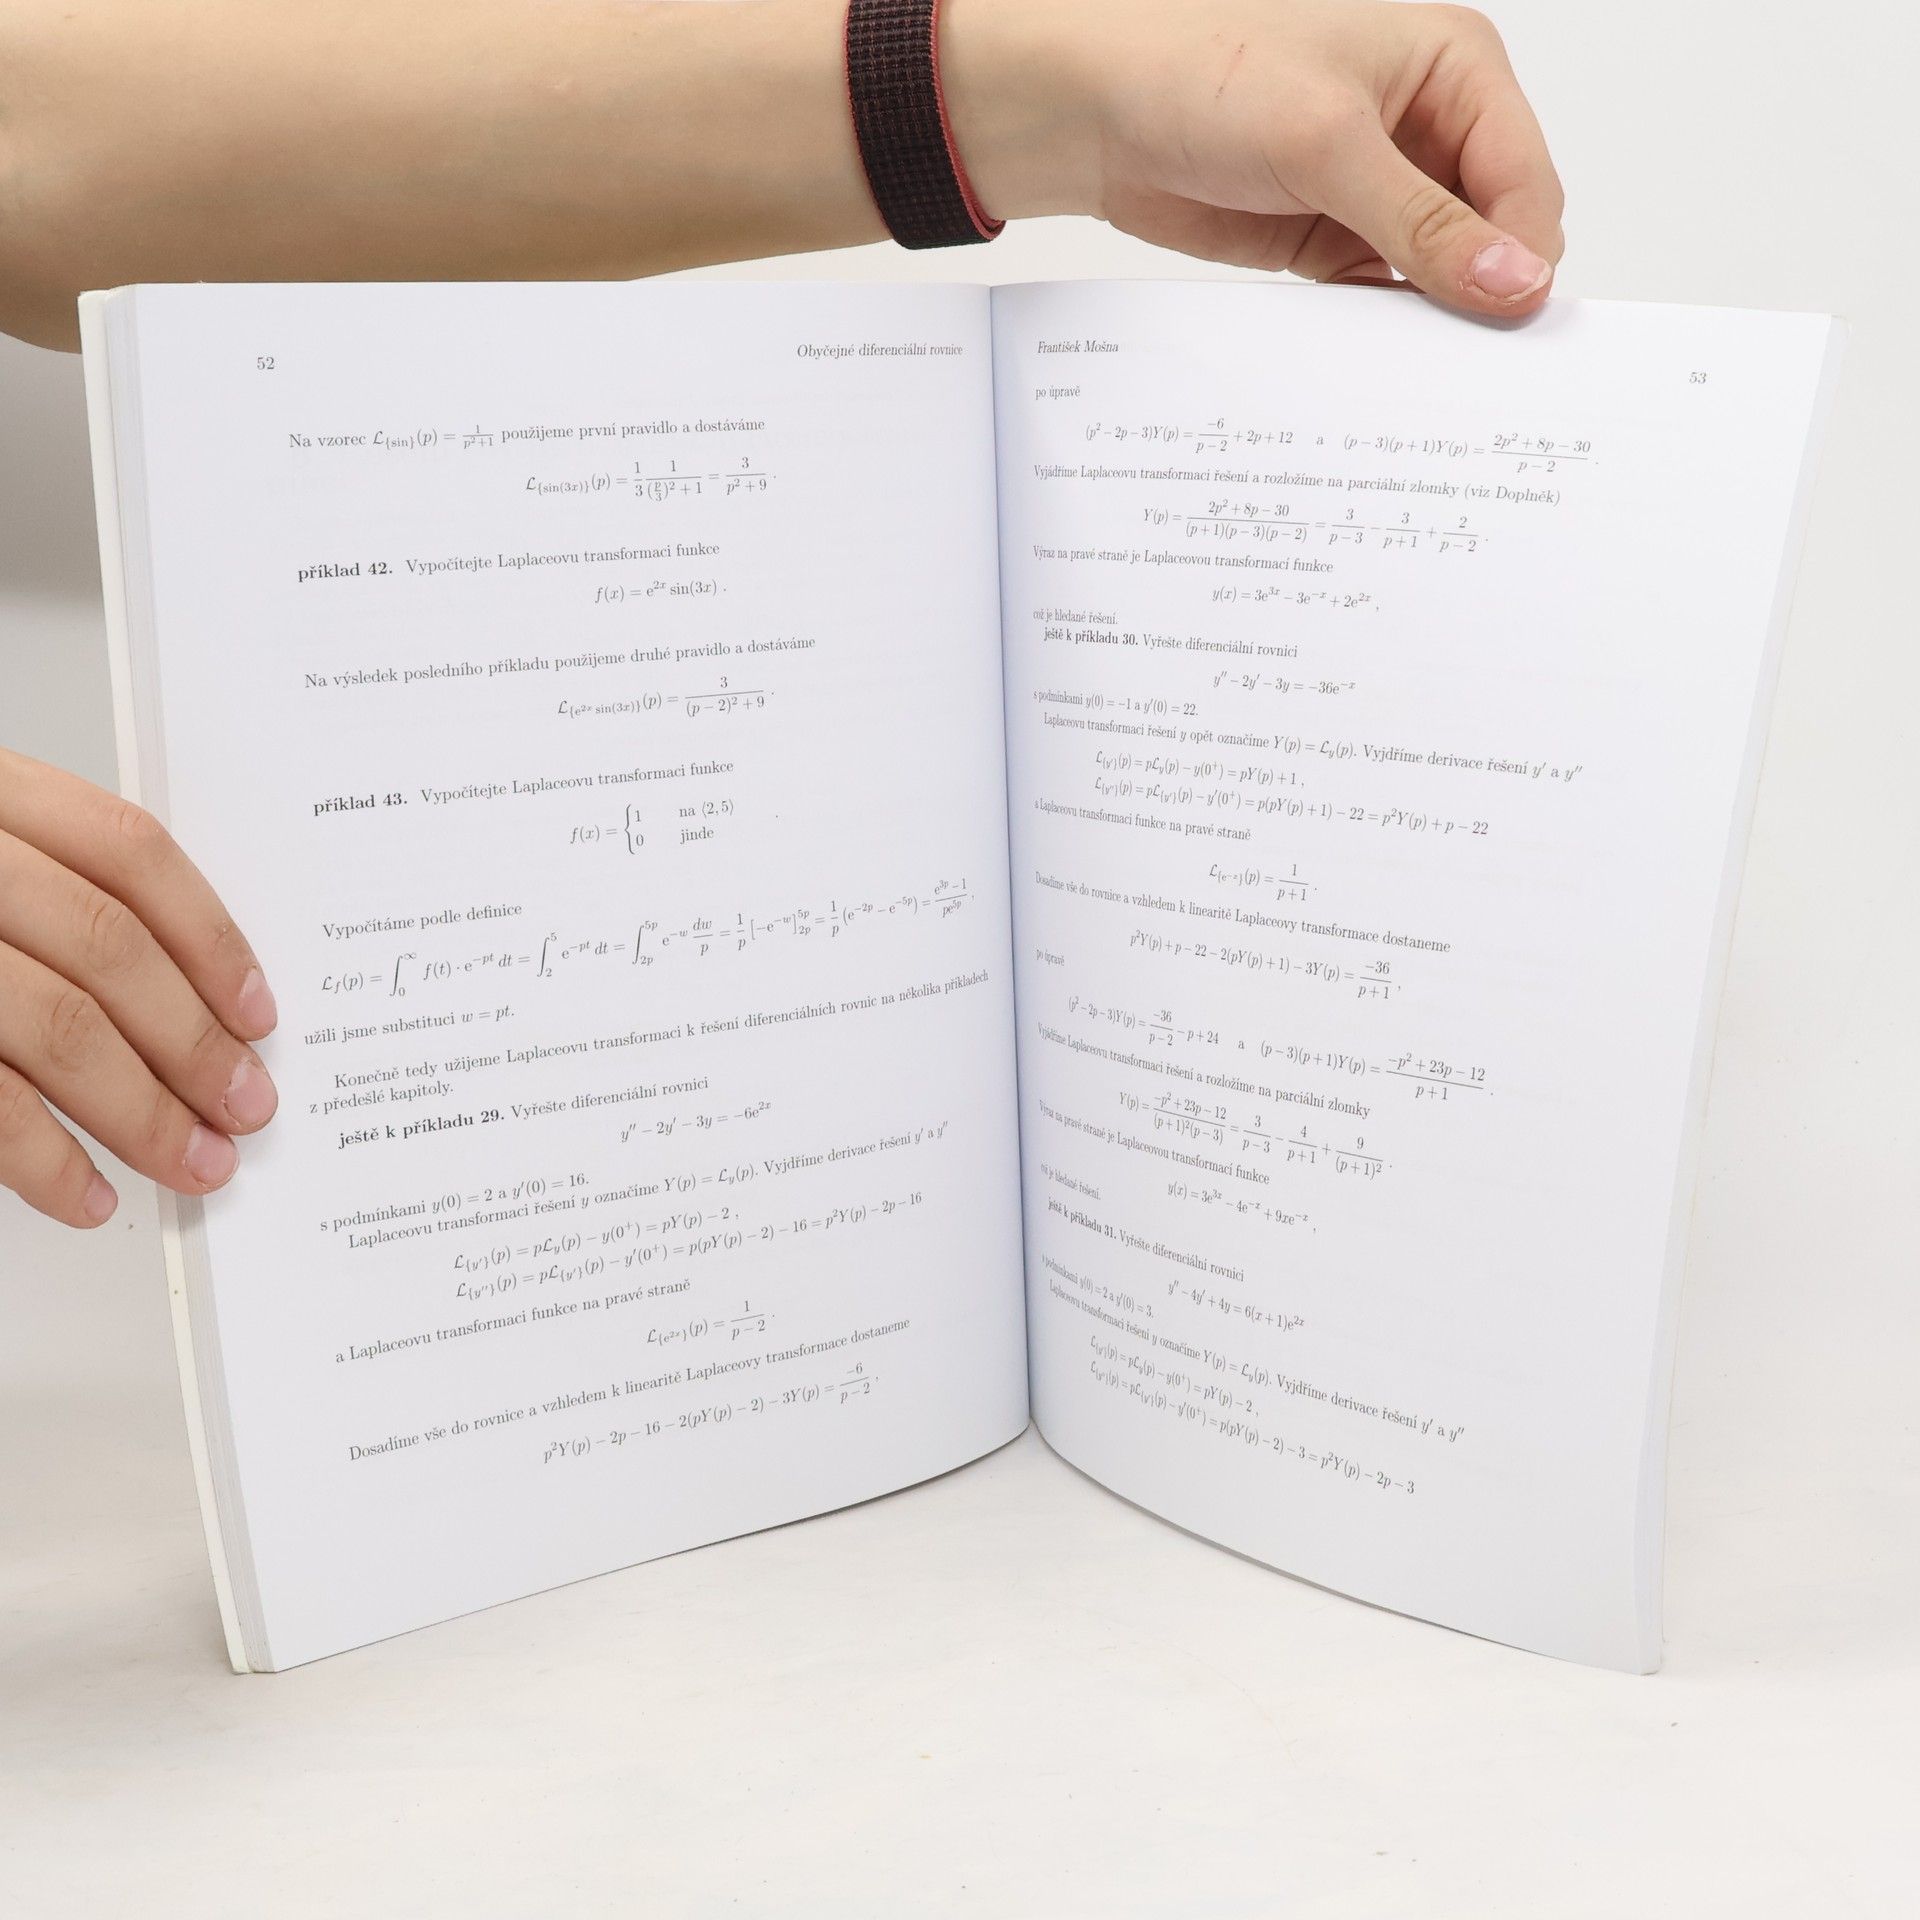 52
Obyčejné diferenciální rovnice
Na vzorec ℒ{sin}(p) = 1/(p²+1) použijeme první pravidlo a dostáváme
ℒ{sin(3x)}(p) = 1/3 · 1/((p/3)² + 1) = 3/(p² + 9) .
příklad 42. Vypočítejte Laplaceovu transformaci funkce
f(x) = e^{2x} sin(3x) .
Na výsledek posledního příkladu použijeme druhé pravidlo a dostáváme
ℒ{e^{2x} sin(3x)}(p) = 3/((p − 2)² + 9) .
příklad 43. Vypočítejte Laplaceovu transformaci funkce
f(x) = { 1 na ⟨2, 5⟩
0 jinde .
Vypočítáme podle definice
ℒ_f(p) = ∫_0^∞ f(t) · e^{−pt} dt = ∫_2^5 e^{−pt} dt = ∫_{2p}^{5p} e^{−w} dw/p = 1/p [−e^{−w}]_{2p}^{5p} = 1/p (e^{−2p} − e^{−5p}) = (e^{3p} − 1)/(pe^{5p}) ,
užili jsme substituci w = pt.
Konečně tedy užijeme Laplaceovu transformaci k řešení diferenciálních rovnic na několika příkladech
z předešlé kapitoly.
ještě k příkladu 29. Vyřešte diferenciální rovnici
y″ − 2y′ − 3y = −6e^{2x}
s podmínkami y(0) = 2 a y′(0) = 16.
Laplaceovu transformaci řešení y označíme Y(p) = ℒ_y(p). Vyjdříme derivace řešení y′ a y″
ℒ{y′}(p) = pℒ_y(p) − y(0⁺) = pY(p) − 2 ,
ℒ{y″}(p) = pℒ{y′}(p) − y′(0⁺) = p(pY(p) − 2) − 16 = p²Y(p) − 2p − 16
a Laplaceovu transformaci funkce na pravé straně
ℒ{e^{2x}}(p) = 1/(p − 2) .
Dosadíme vše do rovnice a vzhledem k linearitě Laplaceovy transformace dostaneme
p²Y(p) − 2p − 16 − 2(pY(p) − 2) − 3Y(p) = −6/(p − 2) ,
František Mošna
53
po úpravě
(p² − 2p − 3)Y(p) = −6/(p − 2) + 2p + 12 a (p − 3)(p + 1)Y(p) = (2p² + 8p − 30)/(p − 2) .
Vyjádříme Laplaceovu transformaci řešení a rozložíme na parciální zlomky (viz Doplněk)
Y(p) = (2p² + 8p − 30)/((p + 1)(p − 3)(p − 2)) = 3/(p − 3) − 3/(p + 1) + 2/(p − 2) .
Výraz na pravé straně je Laplaceovou transformací funkce
y(x) = 3e^{3x} − 3e^{−x} + 2e^{2x} ,
což je hledané řešení.
ještě k příkladu 30. Vyřešte diferenciální rovnici
y″ − 2y′ − 3y = −36e^{−x}
s podmínkami y(0) = −1 a y′(0) = 22.
Laplaceovu transformaci řešení y opět označíme Y(p) = ℒ_y(p). Vyjdříme derivace řešení y′ a y″
ℒ{y′}(p) = pℒ_y(p) − y(0⁺) = pY(p) + 1 ,
ℒ{y″}(p) = pℒ{y′}(p) − y′(0⁺) = p(pY(p) + 1) − 22 = p²Y(p) + p − 22
a Laplaceovu transformaci funkce na pravé straně
ℒ{e^{−x}}(p) = 1/(p + 1) .
Dosadíme vše do rovnice a vzhledem k linearitě Laplaceovy transformace dostaneme
p²Y(p) + p − 22 − 2(pY(p) + 1) − 3Y(p) = −36/(p + 1) ,
po úpravě
(p² − 2p − 3)Y(p) = −36/(p − 2) − p + 24 a (p − 3)(p + 1)Y(p) = (−p² + 23p − 12)/(p + 1) .
Vyjádříme Laplaceovu transformaci řešení a rozložíme na parciální zlomky
Y(p) = (−p² + 23p − 12)/((p + 1)²(p − 3)) = 3/(p − 3) − 4/(p + 1) + 9/(p + 1)² .
Výraz na pravé straně je Laplaceovou transformací funkce
y(x) = 3e^{3x} − 4e^{−x} + 9xe^{−x} ,
což je hledané řešení.
ještě k příkladu 31. Vyřešte diferenciální rovnici
y″ − 4y′ + 4y = 6(x + 1)e^{2x}
s podmínkami y(0) = 2 a y′(0) = 3.
Laplaceovu transformaci řešení y označíme Y(p) = ℒ_y(p). Vyjdříme derivace řešení y′ a y″
ℒ{y′}(p) = pℒ_y(p) − y(0⁺) = pY(p) − 2 ,
ℒ{y″}(p) = pℒ{y′}(p) − y′(0⁺) = p(pY(p) − 2) − 3 = p²Y(p) − 2p − 3